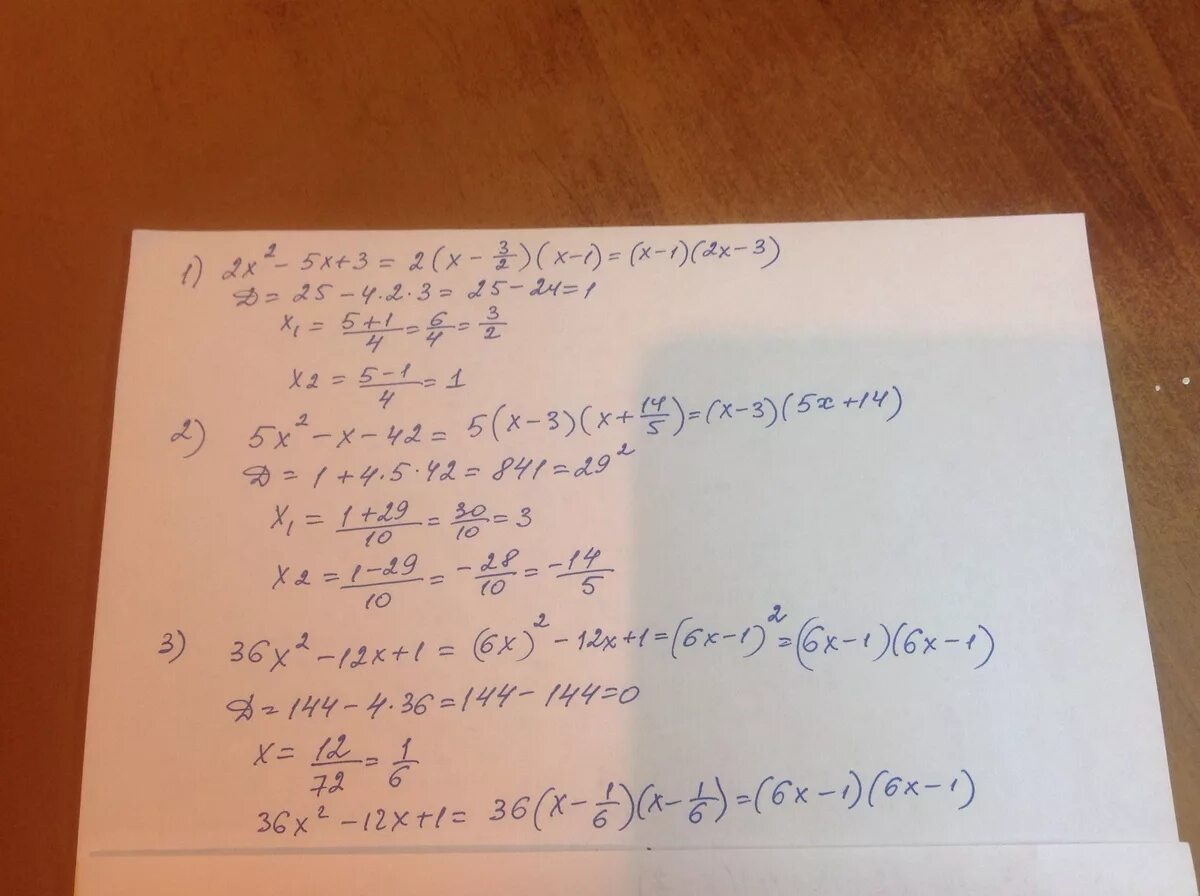 1) 2x² - 5x + 3 = 2(x - 3/2)(x-1) = (x-1)(2x-3)
Д = 25 - 4·2·3 = 25 - 24 = 1
x₁ = (5+1)/4 = 6/4 = 3/2
x2 = (5-1)/4 = 1
2) 5x² - x - 42 = 5(x-3)(x + 14/5) = (x-3)(5x+14)
Д = 1 + 4·5·42 = 841 = 29²
x₁ = (1+29)/10 = 30/10 = 3
x2 = (1-29)/10 = -28/10 = -14/5
3) 36x² - 12x + 1 = (6x)² - 12x + 1 = (6x-1)² = (6x-1)(6x-1)
Д = 144 - 4·36 = 144 - 144 = 0
x = 12/72 = 1/6
36x² - 12x + 1 = 36(x - 1/6)(x - 1/6) = (6x-1)(6x-1)